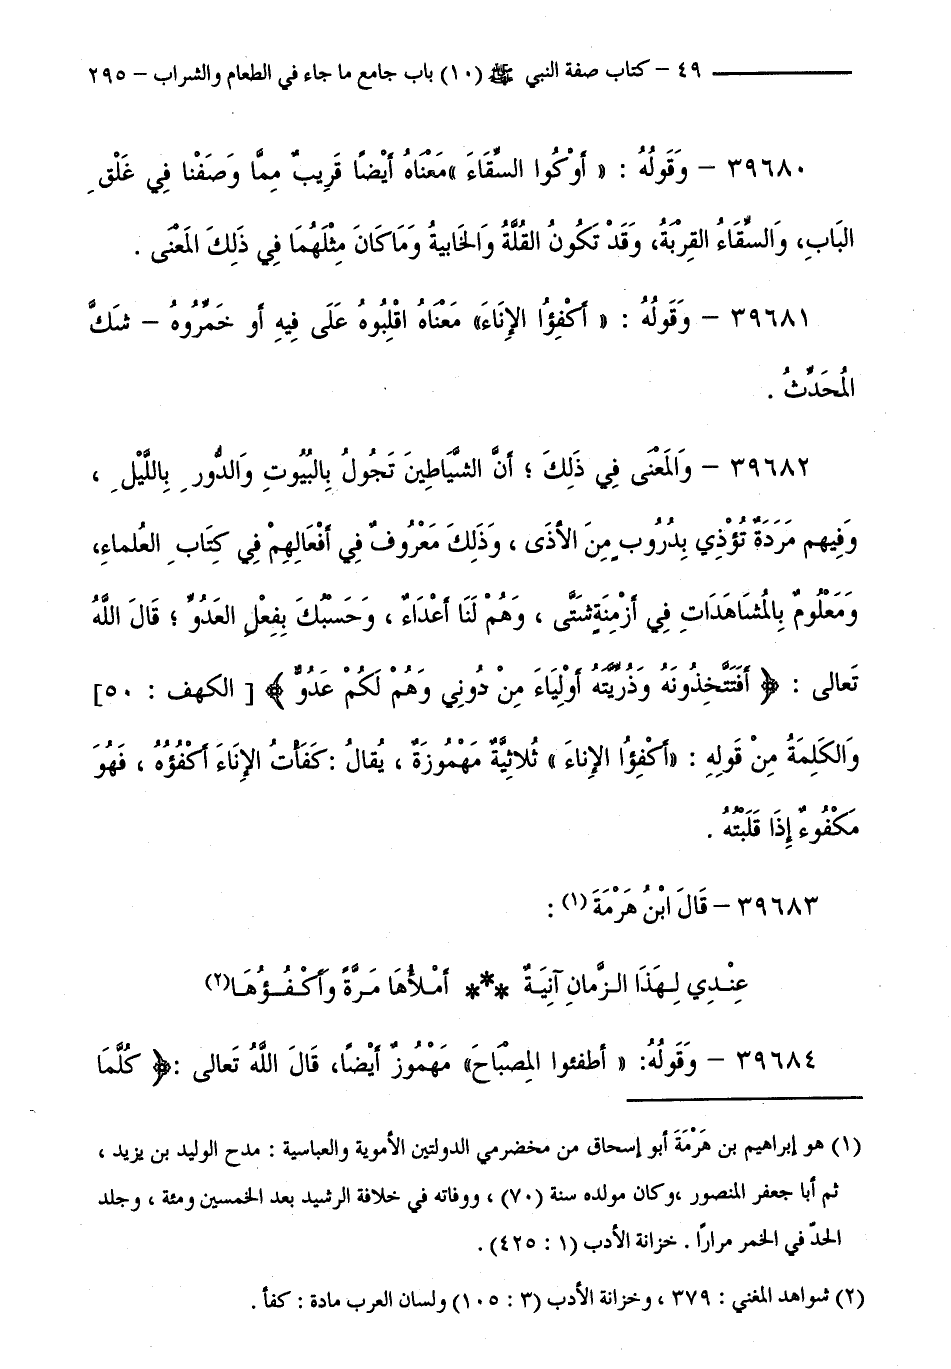 ٤٩ – كتاب صفة النبي ﷺ (١٠) باب جامع ما جاء في الطعام والشراب – ٢٩٥
٣٩٦٨٠ – وَقَولُهُ : « أَوْكُوا السِّقَاءَ »مَعْنَاهُ أَيْضًا قَرِيبٌ مِمَّا وَصَفْنَا فِي غَلْقِ
البَابِ، وَالسِّقَاءُ القِرْبَةُ، وَقَدْ تَكُونُ القُلَّةُ وَالخَابيةُ وَمَاكَانَ مِثْلَهُمَا فِي ذَلِكَ المَعْنَى .
٣٩٦٨١ – وَقَولُهُ : « أَكْفِؤُا الإِنَاءَ» مَعْنَاهُ اقْلِبُوهُ عَلَى فِيهِ أو خَمِّرُوهُ – شكَّ
المُحَدِّثُ .
٣٩٦٨٢ – وَالمَعْنَى فِي ذَلِكَ ؛ أنَّ الشَّيَاطِينَ تَجُولُ بِالبُيُوتِ وَالدُّورِ بِاللَّيْلِ ،
وَفِيهم مَرَدَةٌ تُؤْذِي بِدُرُوبٍ مِنَ الأذَى ، وَذَلِكَ مَعْرُوفٌ فِي أفْعَالِهِمْ فِي كِتَابِ العُلماءِ،
وَمَعْلُومٌ بِالمُشَاهَدَاتِ فِي أزْمِنَةٍشتَّى ، وَهُمْ لَنَا أعْدَاءٌ ، وَحَسْبُكَ بِفِعْلِ العَدُوِّ ؛ قَالَ اللهُ
تَعالى : ﴿ أفَتَتَّخِذُونَهُ وَذُرِّيَّتَهُ أوْلِيَاءَ مِنْ دُونِي وَهُمْ لَكُمْ عَدُوٌّ ﴾ [ الكهف : ٥٠]
وَالكَلِمَةُ مِنْ قَولِهِ : «أكْفِؤُا الإِناءَ » ثُلاثِيَّةٌ مَهْمُوزَةٌ ، يُقالُ :كَفَأتُ الإِنَاءَ أكْفُؤُهُ ، فَهُوَ
مَكْفُوءٌ إِذَا قَلَبْتُهُ .
٣٩٦٨٣ – قَالَ ابْنُ هَرْمَةَ (١) :
عِنْدِي لِهَذَا الزَّمانِ آنِيَةٌ *** أمْلأُهَا مَرَّةً وَأَكْفُؤُهَا(٢)
٣٩٦٨٤ – وَقَولُهُ: « أطفئوا المِصْبَاحَ» مَهْمُوزٌ أيْضًا، قَالَ اللَّهُ تَعالى :﴿ كُلَّمَا
(١) هو إبراهيم بن هَرْمَةَ أبو إسحاق من مخضرمي الدولتين الأموية والعباسية : مدح الوليد بن يزيد ،
ثم أبا جعفر المنصور ،وكان مولده سنة (٧٠) ، ووفاته في خلافة الرشيد بعد الخمسين ومئة ، وجلد
الحدّ في الخمر مرارًا . خزانة الأدب (١ : ٤٢٥) .
(٢) شواهد المغني : ٣٧٩ ، وخزانة الأدب (٣ : ١٠٥) ولسان العرب مادة : كفأ .